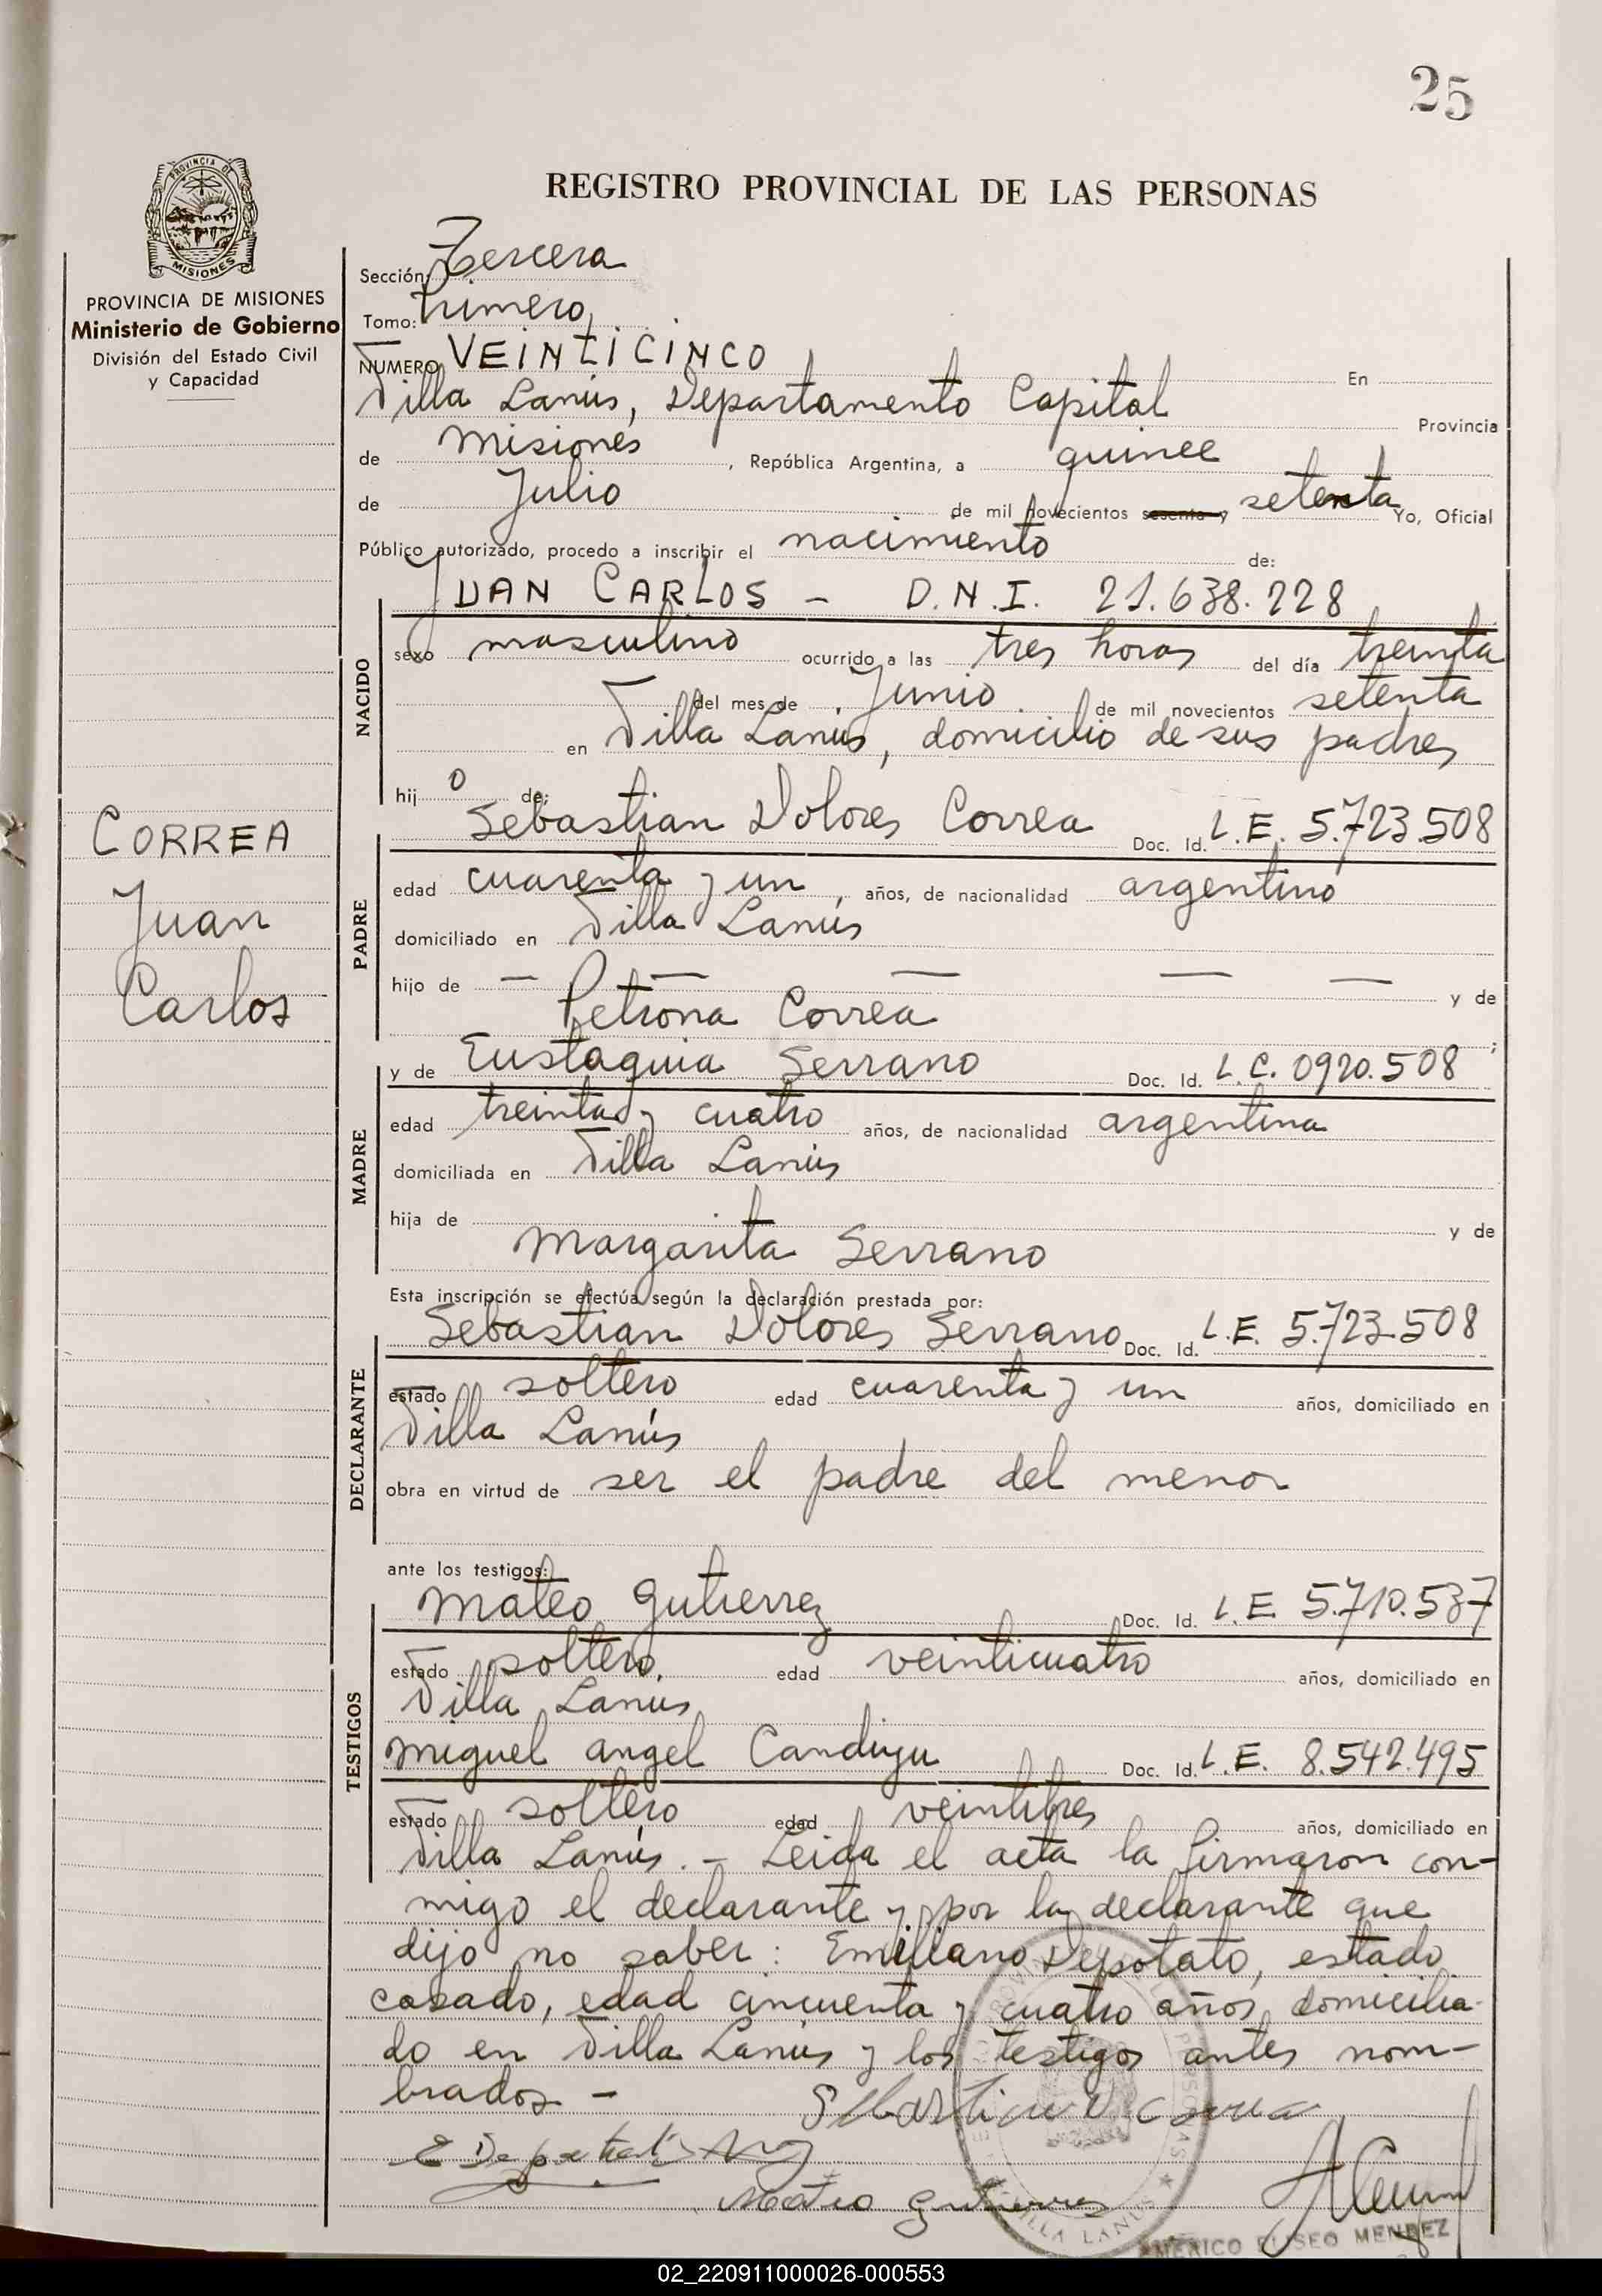 25
REGISTRO PROVINCIAL DE LAS PERSONAS
PROVINCIA DE
MISIONES
PROVINCIA DE MISIONES
Ministerio de Gobierno
División del Estado Civil
y Capacidad
CORREA
Juan
Carlos
Sección: Tercera
Tomo: Primero
NUMERO VEINTICINCO En
Villa Lanús, Departamento Capital Provincia
de Misiones, República Argentina, a quince
de Julio de mil novecientos sesenta y setenta Yo, Oficial
Público autorizado, procedo a inscribir el nacimiento de:
JUAN CARLOS - D.N.I. 21.638.228
NACIDO
sexo masculino ocurrido a las tres horas del día treinta
del mes de Junio de mil novecientos setenta
en Villa Lanús, domicilio de sus padres
hijo de:
Sebastian Dolores Correa Doc. Id. L.E. 5.723.508
PADRE
edad cuarenta y un años, de nacionalidad argentino
domiciliado en Villa Lanús
hijo de — — — — — y de
Petrona Correa
y de Eustaquia Serrano Doc. Id. L.C. 0920.508
MADRE
edad treinta y cuatro años, de nacionalidad argentina
domiciliada en Villa Lanús
hija de y de
Margarita Serrano
Esta inscripción se efectúa según la declaración prestada por:
Sebastian Dolores Serrano Doc. Id. L.E. 5.723.508
DECLARANTE
estado soltero edad cuarenta y un años, domiciliado en
Villa Lanús
obra en virtud de ser el padre del menor
ante los testigos:
Mateo Gutierrez Doc. Id. L.E 5.710.537
TESTIGOS
estado soltero. edad veinticuatro años, domiciliado en
Villa Lanús
Miguel angel Canduju Doc. Id. L.E. 8.542.495
estado soltero edad veintitres años, domiciliado en
Villa Lanús. - Leida el acta la firmaron con-
migo el declarante y por la declarante que
dijo no saber: Emiliano Depotato, estado
casado, edad cincuenta y cuatro años, domicilia-
do en Villa Lanús y los testigos antes nom-
brados -
Mateo Gutierres
VILLA LANUS
AMERICO ELISEO MENDEZ
02_220911000026-000553